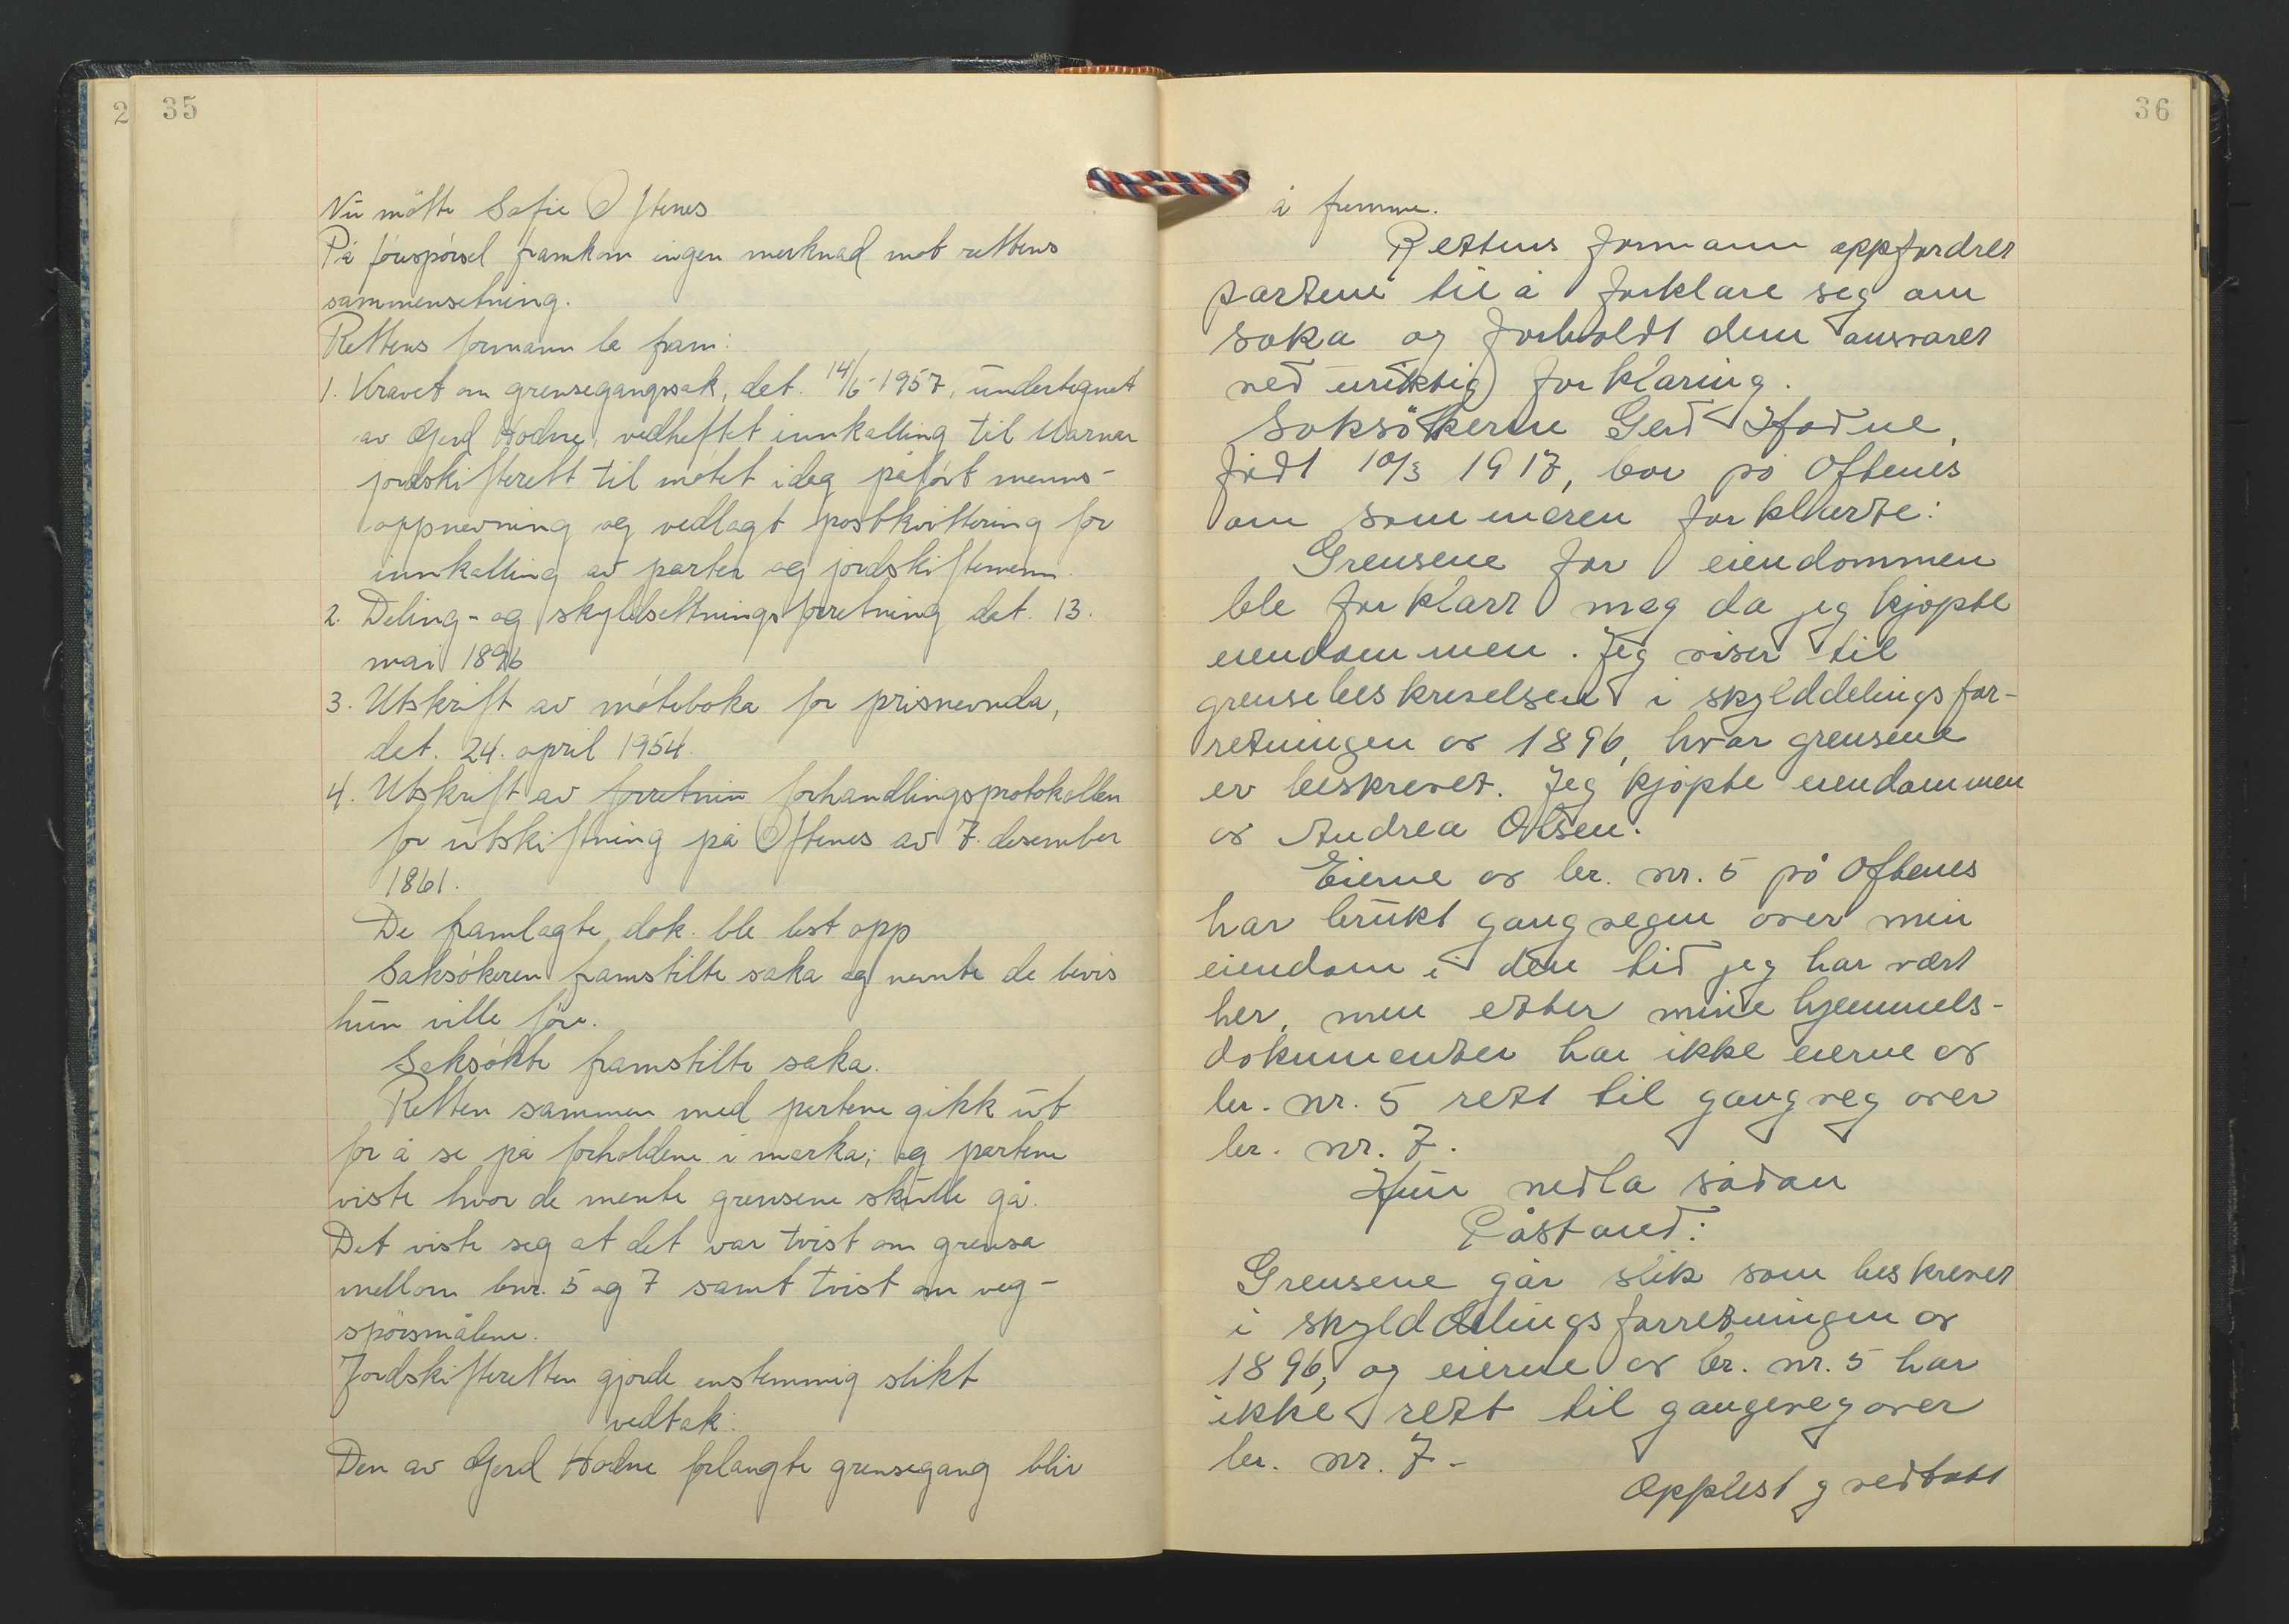 2
35
Nu møtte Sofie Oftenes
På forespørsel framkom ingen merknad mot rettens
sammensetning.
Rettens formann la fram:
1. Kravet om grensegangssak, dat. 14/6-1957, undertegnet
av Gerd Hodne, vedheftet innkalling til Marnar
jordskifterett til møtet idag påført menns-
oppnevning og vedlagt postkvittering for
innkalling av parter og jordskiftemenn.
2. Deling- og skyldsettningsforretning dat. 13.
mai 1896
3. Utskrift av møteboka for prisnevnda,
dat. 24. april 1954.
4. Utskrift av forretnin forhandlingsprotokollen
for utskiftning på Oftenes av 7. desember
1861.
De framlagte dok. ble lest opp
Saksøkeren framstilte saka og nemte de bevis
hun ville føre.
Saksøkte framstilte saka.
Retten sammen med partene gikk ut
for å se på forholdene i marka; og partene
viste hvor de mente grensene skulle gå.
Det viste seg at det var tvist om grensa
mellom bnr. 5 og 7 samt tvist om veg-
spørsmålene.
Jordskifteretten gjorde enstemmig slikt
vedtak:
Den av Gerd Hodne forlangte grensegang blir
36
å fremme.
Rettens formann oppfordret
partene til å forklare seg om
saka og forholdt dem ansvaret
ved uriktig forklaring.
Saksøkeren Gerd Hodne,
født 10/3 1917, bor på Oftenes
om sommeren forklarte:
Grensene for eiendommen
ble forklart meg da jeg kjøpte
eiendommen. Jeg viser til
grensebeskrivelsene i skylddelingsfor-
retningen av 1896, hvor grensene
er beskrevet. Jeg kjøpte eiendommen
av Andrea Olsen.
Eierne av br. nr. 5 på Oftenes
har brukt gangvegen over min
eiendom i den tid jeg har vært
her, men etter mine hjemmels-
dokumenter har ikke eierne av
br. nr. 5 rett til gangveg over
br. nr. 7.
Hun nedla sådan
Påstand:
Grensene går slik som beskrevet
i skylddelingsforretningen av
1896, og eierne av br. nr. 5 har
ikke rett til gangeveg over
br. nr. 7.-
Opplest g vedtatt